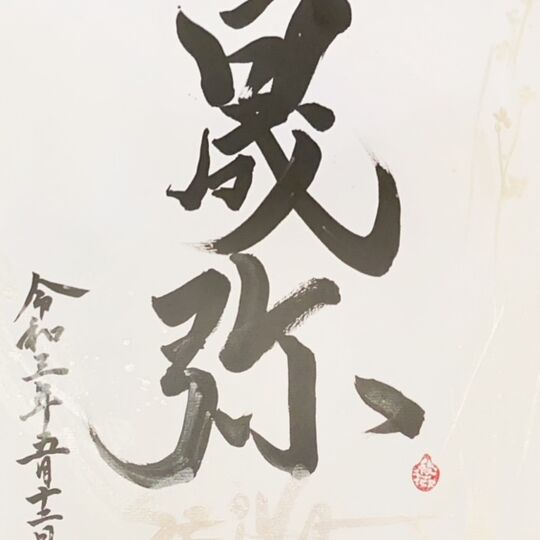 晟弥
令和三年五月十三日